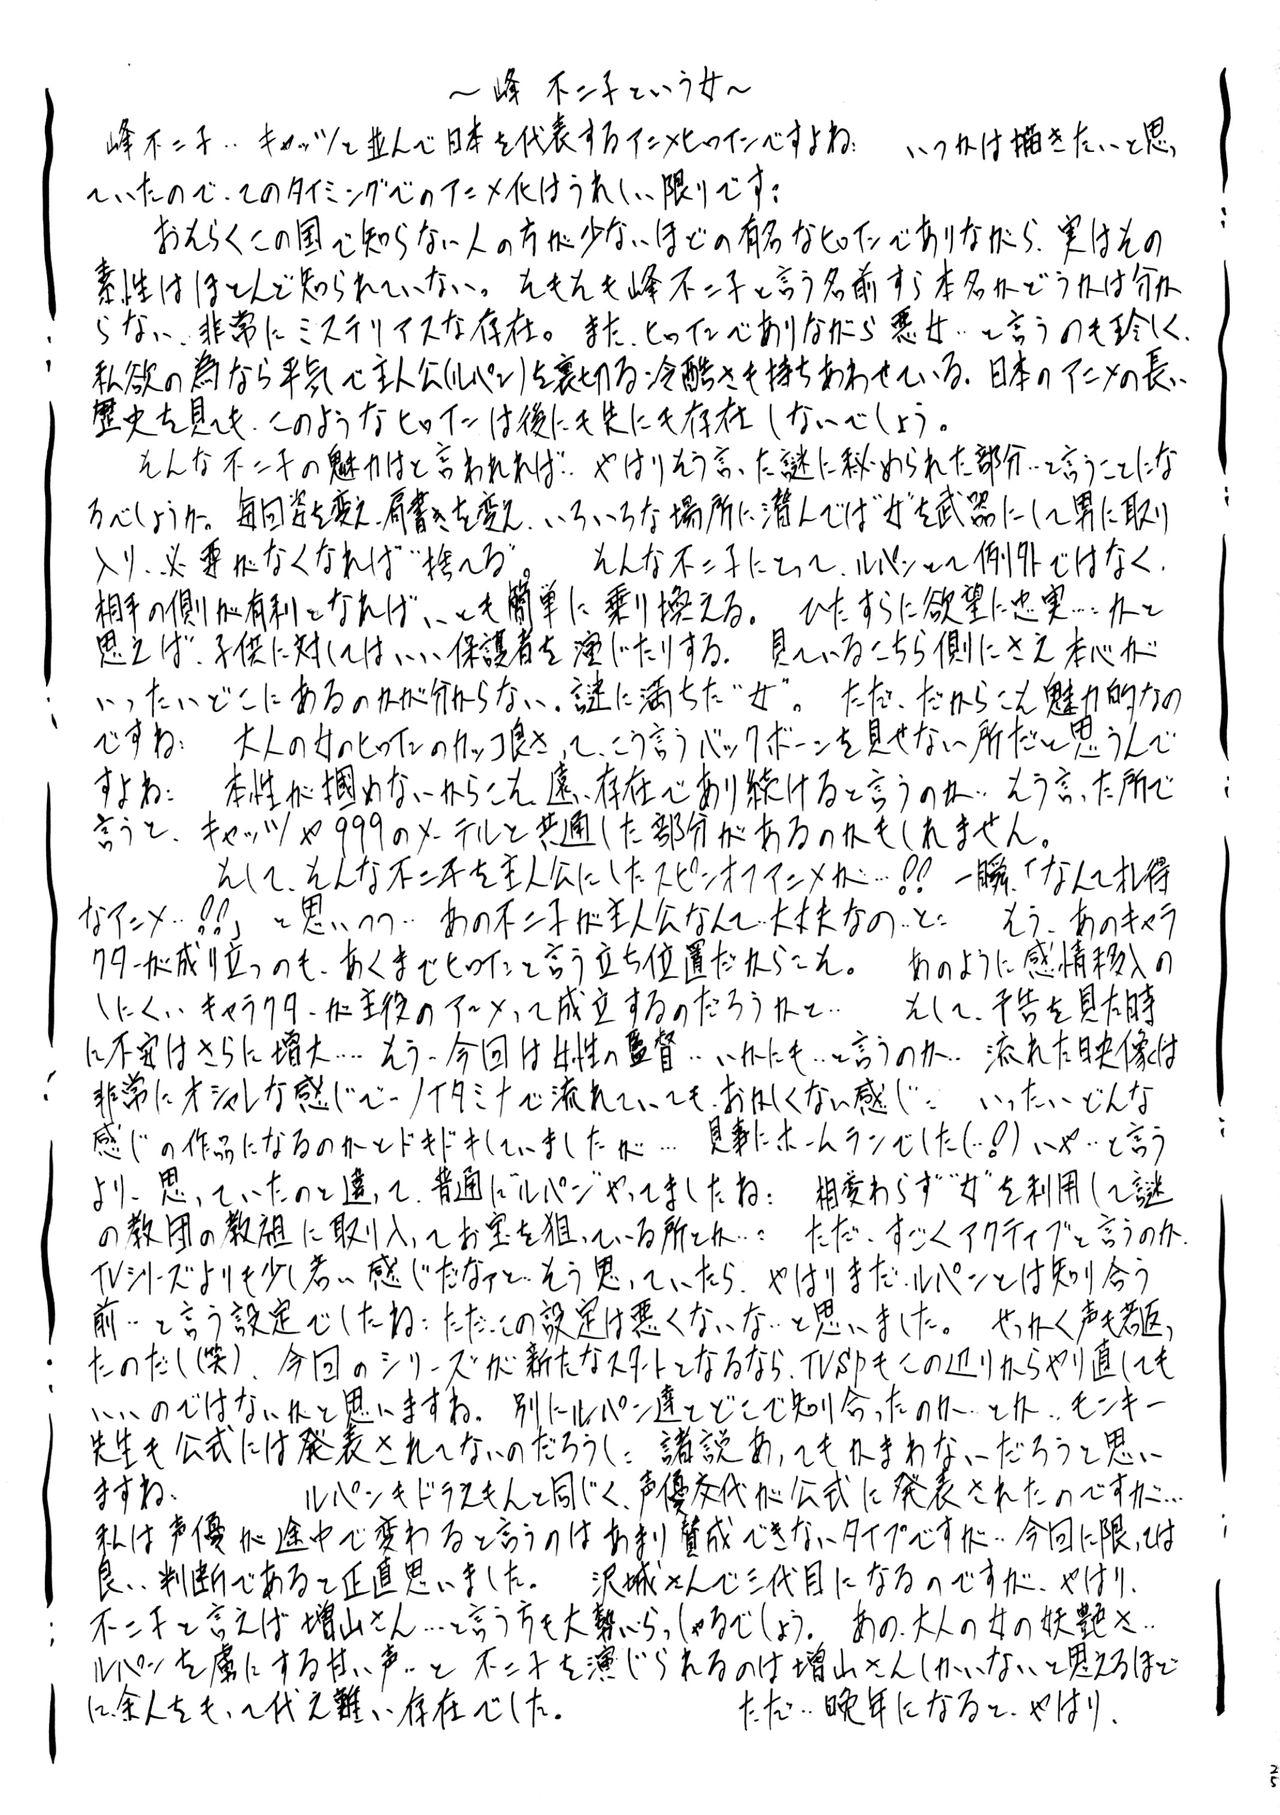 ～峰 不二子という女～
峰不二子‥キャッツと並んで日本を代表するアニメヒロインですよね: いつかは描きたいと思っ
ていたので、このタイミングでのアニメ化はうれしい限りです:
おそらくこの国で知らない人の方が少ないほどの有名なヒロインでありながら、実はその
素性はほとんど知られていない。そもそも峰不二子と言う名前すら本名かどうかは分か
らない、非常にミステリアスな存在。また、ヒロインでありながら悪女‥と言うのも珍しく、
私欲の為なら平気で主人公(ルパン)を裏切る冷酷さも持ちあわせている。日本のアニメの長い
歴史を見ても、このようなヒロインは後にも先にも存在しないでしょう。
そんな不二子の魅力はと言われれば‥やはりそう言った謎に秘められた部分‥と言うことにな
るでしょうか。毎回姿を変え、肩書きを変え、いろいろな場所に潜んでは“女”を武器にして男に取り
入り、必要がなくなれば“捨てる”。 そんな不二子にとって、ルパンとて例外ではなく、
相手の側が有利となれば、いとも簡単に乗り換える。 ひたすらに欲望に忠実…:かと
思えば、子供に対してはいい保護者を演じたりする。 見ているこちら側にさえ本心が
いったいどこにあるのかが分からない、謎に満ちた“女”。 ただ、だからこそ魅力的なの
ですね: 大人の女のヒロインのカッコ良さって、こう言うバックボーンを見せない所だと思うんで
すよね: 本性が掴めないからこそ、遠い存在であり続けると言うのか‥そう言った所で
言うと、キャッツや999のメーテルと共通した部分があるのかもしれません。
そして、そんな不二子を主人公にしたスピンオフアニメが…!! 一瞬、「なんて札得
なアニメ…!!」と思いつつ‥あの不二子が主人公なんて‥大丈夫なの‥と: もう、あのキャラ
クターが成り立つのも、あくまでヒロインと言う立ち位置だからこそ。 あのように感情移入の
しにくいキャラクターが主役のアニメって成立するのだろうかと‥ そして、予告を見た時
に不安はさらに増大…‥もう、今回は女性の監督‥いかにも‥と言うのか‥流れた映像は
非常にオシャレな感じで‥ノイタミナで流れていても、おかしくない感じ: いったいどんな
感じの作品になるのかとドキドキしていましたが… 見事にホームランでした(…!)いや‥と言う
より、思っていたのと違って、普通に“ルパン”やってましたね: 相変わらず“女”を利用して謎
の教団の教祖に取り入ってお宝を狙っている所とか‥: ただ、すごくアクティブと言うのか、
TVシリーズよりも少し若い感じだなァと‥そう思っていたら、やはりまだ、ルパンとは知り合う
前‥と言う設定でしたね:ただ、この設定は悪くないな‥と思いました。 せっかく声も若返っ
たのだし(笑)、今回のシリーズが新たなスタートとなるなら、TVSPもこの辺りからやり直しても
いいのではないかと思いますね。別にルパン達とどこで知り合ったのか‥とか‥モンキー
先生も公式には発表されてないのだろうし: 諸説あってもかまわないーだろうと思い
ますね、 ルパンもドラえもんと同じく、声優交代が公式に発表されたのですが…
私は声優が途中で変わると言うのはあまり賛成できないタイプですが‥今回に限っては
良い判断であると正直思いました。 沢城さんで三代目になるのですが、やはり、
不二子と言えば増山さん…と言う方も大勢いらっしゃるでしょう。 あの、大人の女の妖艶さ‥
ルパンを虜にする甘い声‥と不二子を演じられるのは増山さんしかいないと思えるほど
に、余人をもって代え難い存在でした。 ただ‥晩年になると、やはり、
25